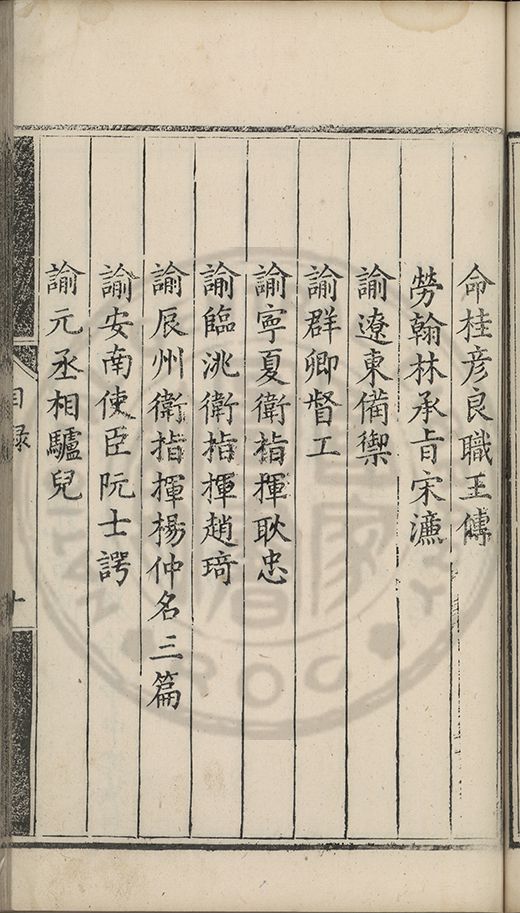 命桂彦良職王傅
勞翰林承旨宋濂
諭遼東備禦
諭群卿督工
諭寧夏衛指揮耿忠
諭臨洮衛指揮趙琦
諭辰州衛指揮楊仲名三篇
諭安南使臣阮士諤
諭元丞相驢兒
目録
十